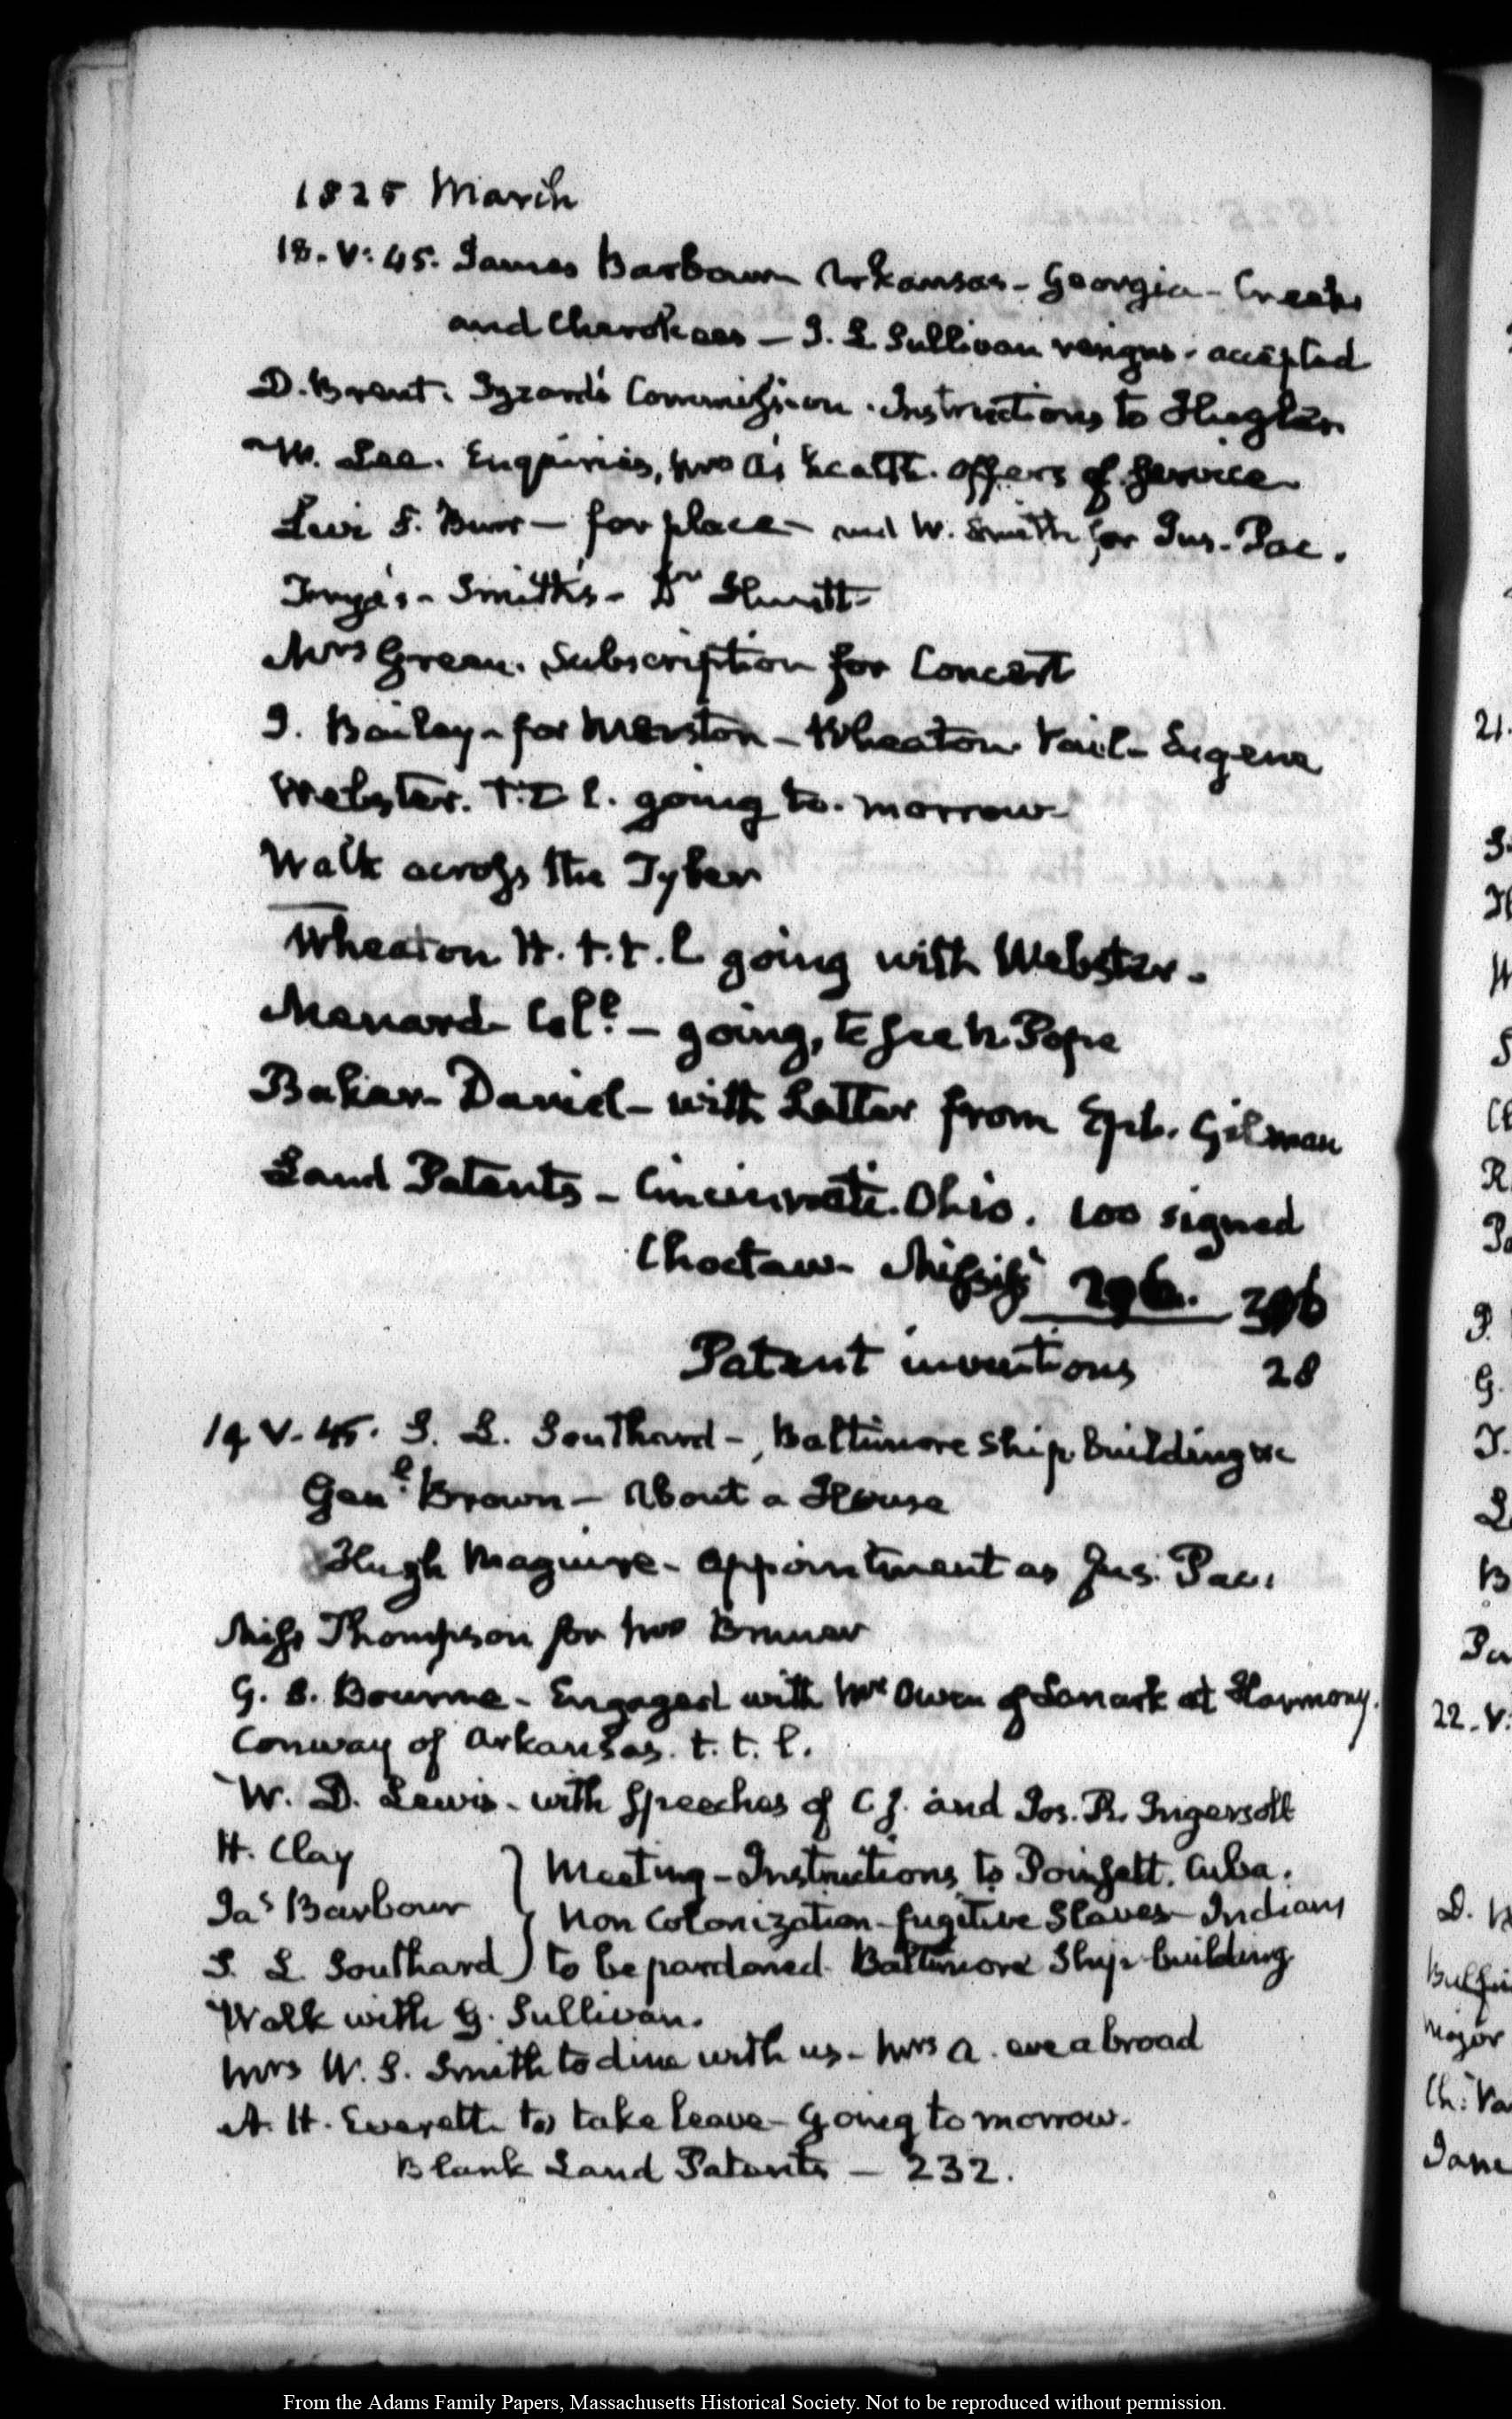 1825 March
18. V: 45. James Barbour Arkansas - Georgia - Creeks
and Cherokees — J. L Sullivan resigns - accepted
D. Brent. Izard's Commission. Instructions to Hughes
W. Lee. Enquiries, Mrs A's health. offers of Service
Levi S. Burr — for place - and W. Smith for Jus. Pac.
Frye's - Smith's - Dr Huntt
Mrs Green. Subscription for Concert
J. Bailey - for Marston - Wheaton Vail - Eugene
Webster. T.T.L. going to-morrow
Walk across the Tyber
Wheaton H. t.t.l going with Webster.
Menard Coll. — going, to see N. Pope
Baker - David - with Letter from Eph. Gilman
Land Patents - Cincinnati. Ohio. 100 signed
Choctaw - Missisi 296. 396
Patent inventions 28
19 V. 45. S. L. Southard -, Baltimore Ship building &c
Genl. Brown — About a House
Hugh Maguire - appointment as Jus. Pac.
Miss Thompson for Mrs
G. B. Bourne - Engaged with Mr Owen of Lanark at Harmony.
Conway of Arkansas. t. t. l.
W. D. Lewis - with Speeches of C J. and Jos. R. Ingersoll
H. Clay } Meeting - Instructions to Poinsett. Cuba.
Jas Barbour } Non Colonization - fugitive Slaves - Indians
S. L Southard } to be pardoned - Baltimore Ship-building
Walk with G. Sullivan.
Mrs W. S. Smith to dine with us - Mrs A. eve abroad
A. H. Everett to take leave - Going tomorrow.
Blank Land Patents — 232.
21.
22. V:
From the Adams Family Papers, Massachusetts Historical Society. Not to be reproduced without permission.